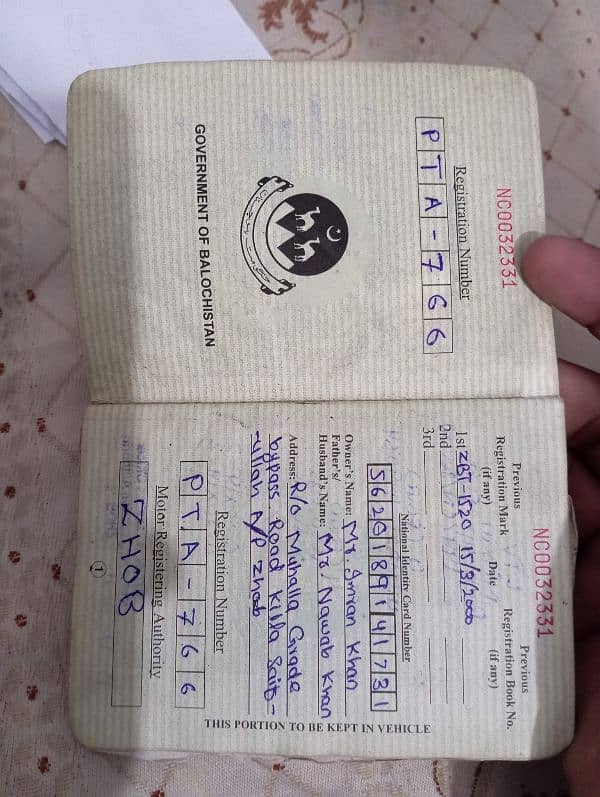 NC0032331
Registration Number
PTA-766
GOVERNMENT OF BALOCHISTAN
NC0032331
Previous Registration Mark (if any)
Date
Previous Registration Book No. (if any)
1st ZBT-1520 15/3/2000
2nd
3rd
National Identity Card Number
5620189141731
Owner's Name: Mr. Imran Khan
Father's/
Husband's Name: Mr Nawab Khan
Address: R/o Muhalla Grade
bypass Road Killa Saif-
-ullah A/P Zhob
Registration Number
PTA-766
Motor Registering Authority
ZHOB
1
THIS PORTION TO BE KEPT IN VEHICLE